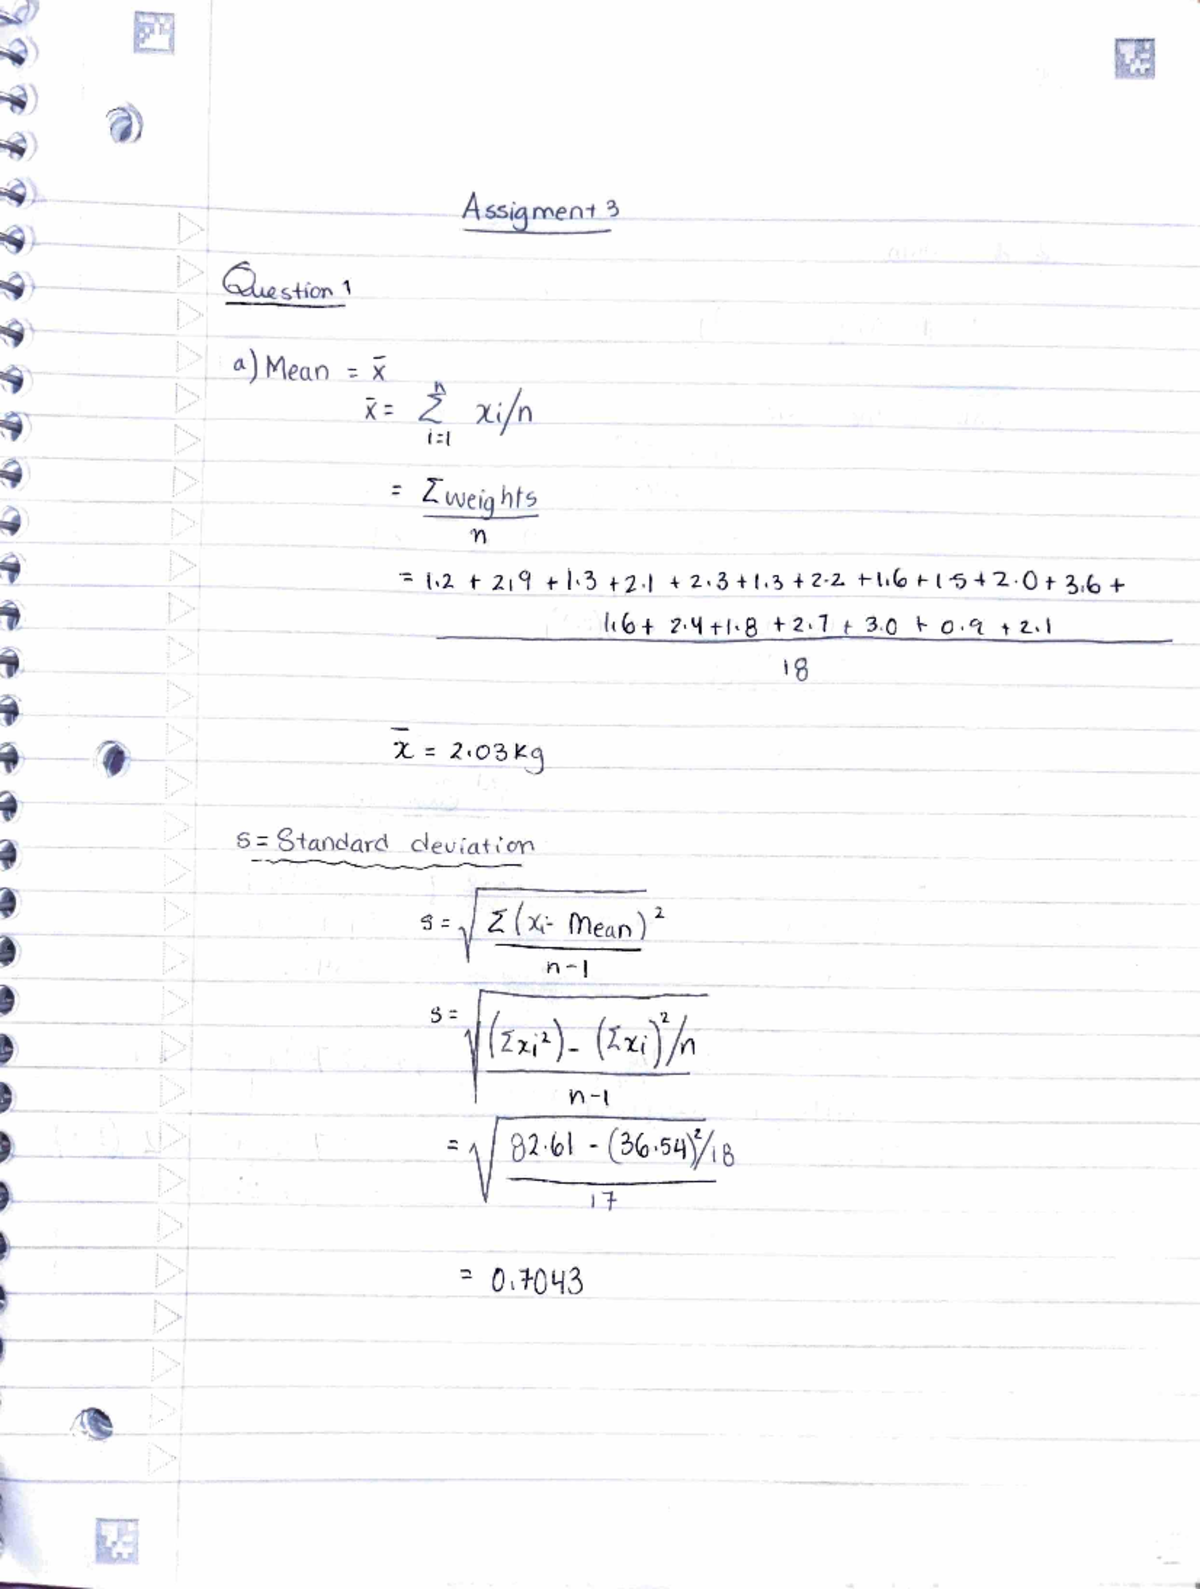 Assigment 3
Question 1
a) Mean = x̄
x̄ = Σ xi/n
n
i=1
= Σweights
n
= 1.2 + 2.9 + 1.3 + 2.1 + 2.3 + 1.3 + 2.2 + 1.6 + 1.5 + 2.0 + 3.6 +
1.6 + 2.4 + 1.8 + 2.7 + 3.0 + 0.9 + 2.1
18
x̄ = 2.03kg
s = Standard deviation
s = √Σ(xi - Mean)²
n-1
s = √(Σxi²) - (Σxi)²/n
n-1
= √82.61 - (36.54)²/18
17
= 0.7043